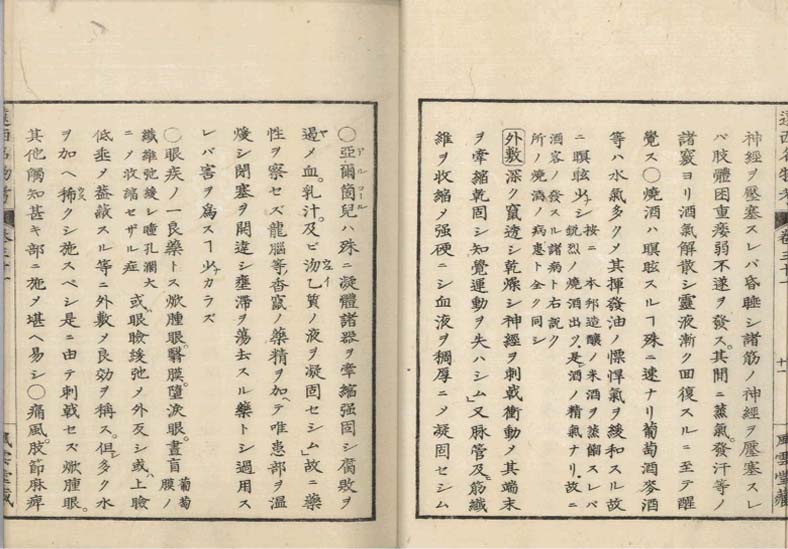 神經ヲ壓塞スレバ昏睡シ諸筋ノ神經ヲ壓塞スレ
バ肢體困重痿弱不遂ヲ發ス。其間ニ蒸氣。發汗等ノ
諸竅ヨリ酒氣解散シ靈液漸ク回復スルニ至テ醒
覺ス〇燒酒ハ瞑眩スルヿ殊ニ速ナリ葡萄酒麥酒
等ハ水氣多クメ其揮發油ノ慓悍氣ヲ緩和スル故
ニ瞑眩少シ 按ニ 本邦造釀ノ米酒ヲ蒸餾スレバ
鋭烈ノ燒酒出ク。是酒ノ精氣ナリ。故ニ
酒客ノ發スル諸病ト右説ク
所ノ燒酒ノ病患ト全ク同シ
外敷 深ク竄透シ乾燥シ神經ヲ刺戟衝動メ其端末
ヲ牽縮乾固シ知覺運動ヲ失ハシム」又脉管及ニ筋纖
維ヲ收縮メ強硬ニシ血液ヲ稠厚ニメ凝固セシム
遠西名物考 卷三十一 十一 風雲堂藏
〇亞爾箇兒ハ殊ニ凝體諸器ヲ牽縮强固シ腐敗ヲ
アルコール
遏メ血。乳汁。及ビ泑乙質ノ液ヲ凝固セシム」故ニ藥
性ヲ察セズ龍腦等香竄ノ藥精ヲ加ヘテ唯患部ヲ溫
煖シ閉塞ヲ開達シ壅滯ヲ蕩去スル藥トシ過用ス
レバ害ヲ爲スヿ少カラズ
〇眼疾ノ一良藥トス焮腫眼。翳膜。墮淚眼。晝盲 葡萄膜ノ
纖維弛緩シ瞳孔濶大
ニメ收縮セザル症 或ハ眼瞼緩弛メ外反シ或ハ上瞼
低垂メ蓋蔽スル等ニ外敷メ良効ヲ稱ス。但シ多ク水
ヲ加ヘ稀クシ施スベシ是ニ由テ刺戟セズ焮腫眼。
其他觸知甚キ部ニ施メ堪ヘ易シ〇痛風。肢節麻痺
遠西名物考 卷三十一 風雲堂藏